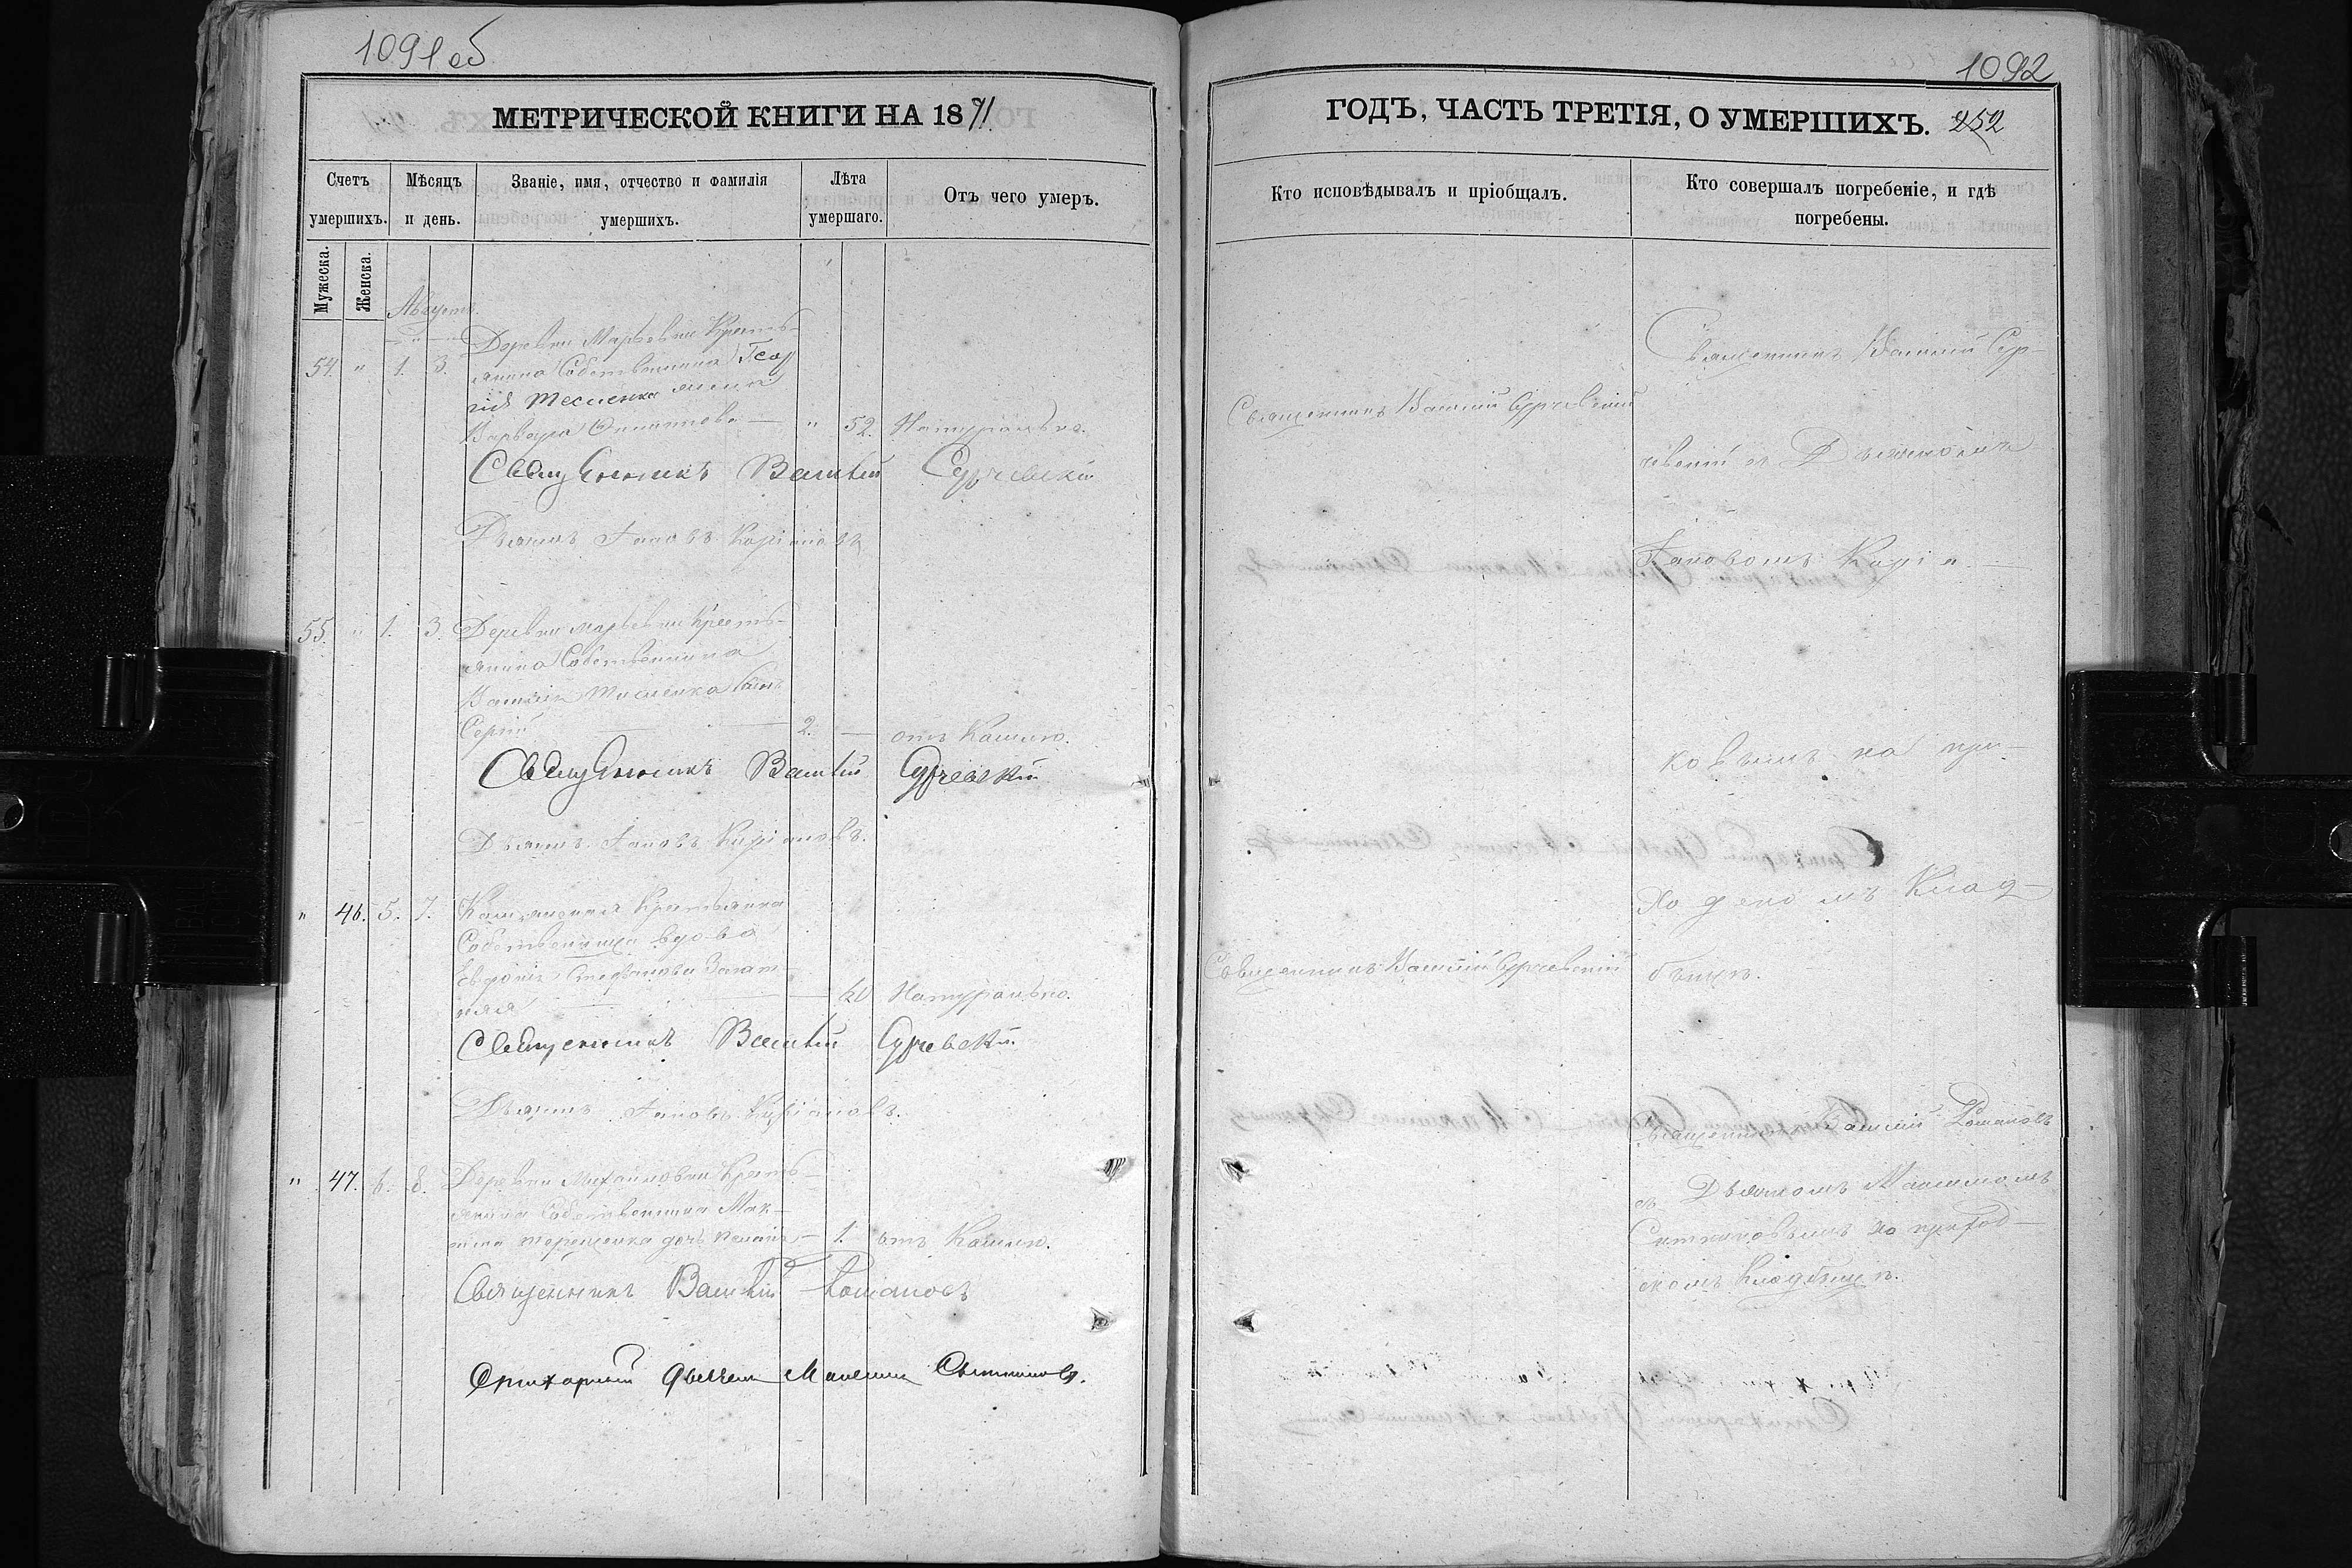 1091 об
МЕТРИЧЕСКОЙ КНИГИ НА 1871
Счетъ умершихъ.
Мѣсяцъ и день.
Званіе, имя, отчество и фамилія умершихъ.
Лѣта умершаго.
Отъ чего умеръ.
Мужеска.
Женска.
Августъ
54. " 1. 3. Деревни Марьевки Кресть-
янина Собственника Геор
гія жена
Варвара — " 52. Натурально.
Священникъ Василій Сурчевскій
Дьячекъ Іаковъ
55. " 1. 3. Деревни Марьевки Кресть-
янина Собственника
Василія сынъ
Сергій — 2. — отъ Кашлю.
Священникъ Василій Сурчевскій
Дьячекъ Іаковъ
" 46. 5. 7. Крестьянка
Собственница вдова
Стефанова
60 Натурально.
Священникъ Василій Сурчевскій
Дьячекъ Іаковъ
" 47. 6. 8. Деревни Михайловки Кресть-
янина Собственника Мак-
сима Терещенка дочь — 1. отъ Кашлю.
Священникъ Василій Романовъ
Стихарный Дьячекъ Максимъ
1092
ГОДЪ, ЧАСТЬ ТРЕТІЯ, О УМЕРШИХЪ. 252
Кто исповѣдывалъ и пріобщалъ.
Кто совершалъ погребеніе, и гдѣ погребены.
Священникъ Василій Сурчевскій
Священникъ Василій Сур-
чевскій съ Дьячкомъ
Іаковомъ
ковымъ на при-
ходскомъ Клад-
бищѣ.
Священникъ Василій Сурчевскій
Священникъ Василій Романовъ
съ Дьячкомъ Максимомъ
на приход-
скомъ Кладбищѣ.